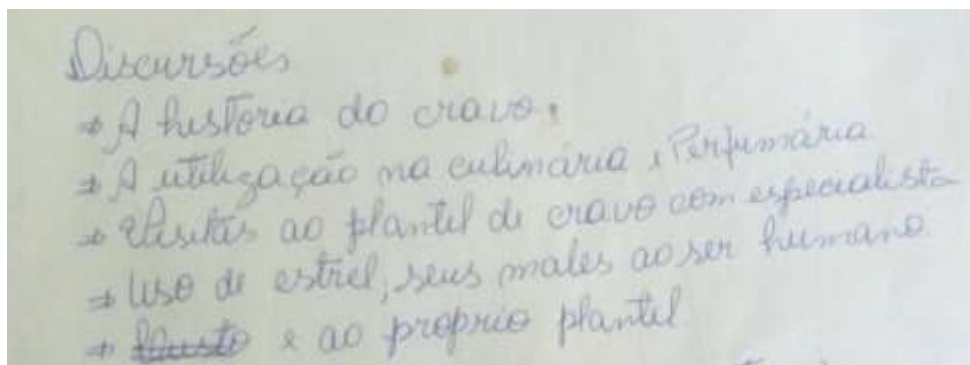 Discursões
⇒ A historia do cravo.
⇒ A utilização na culinária, Perfumária
⇒ Visitas ao plantel de cravo com especialista
⇒ Uso de estrel, seus males ao ser humano.
⇒ e ao proprio plantel